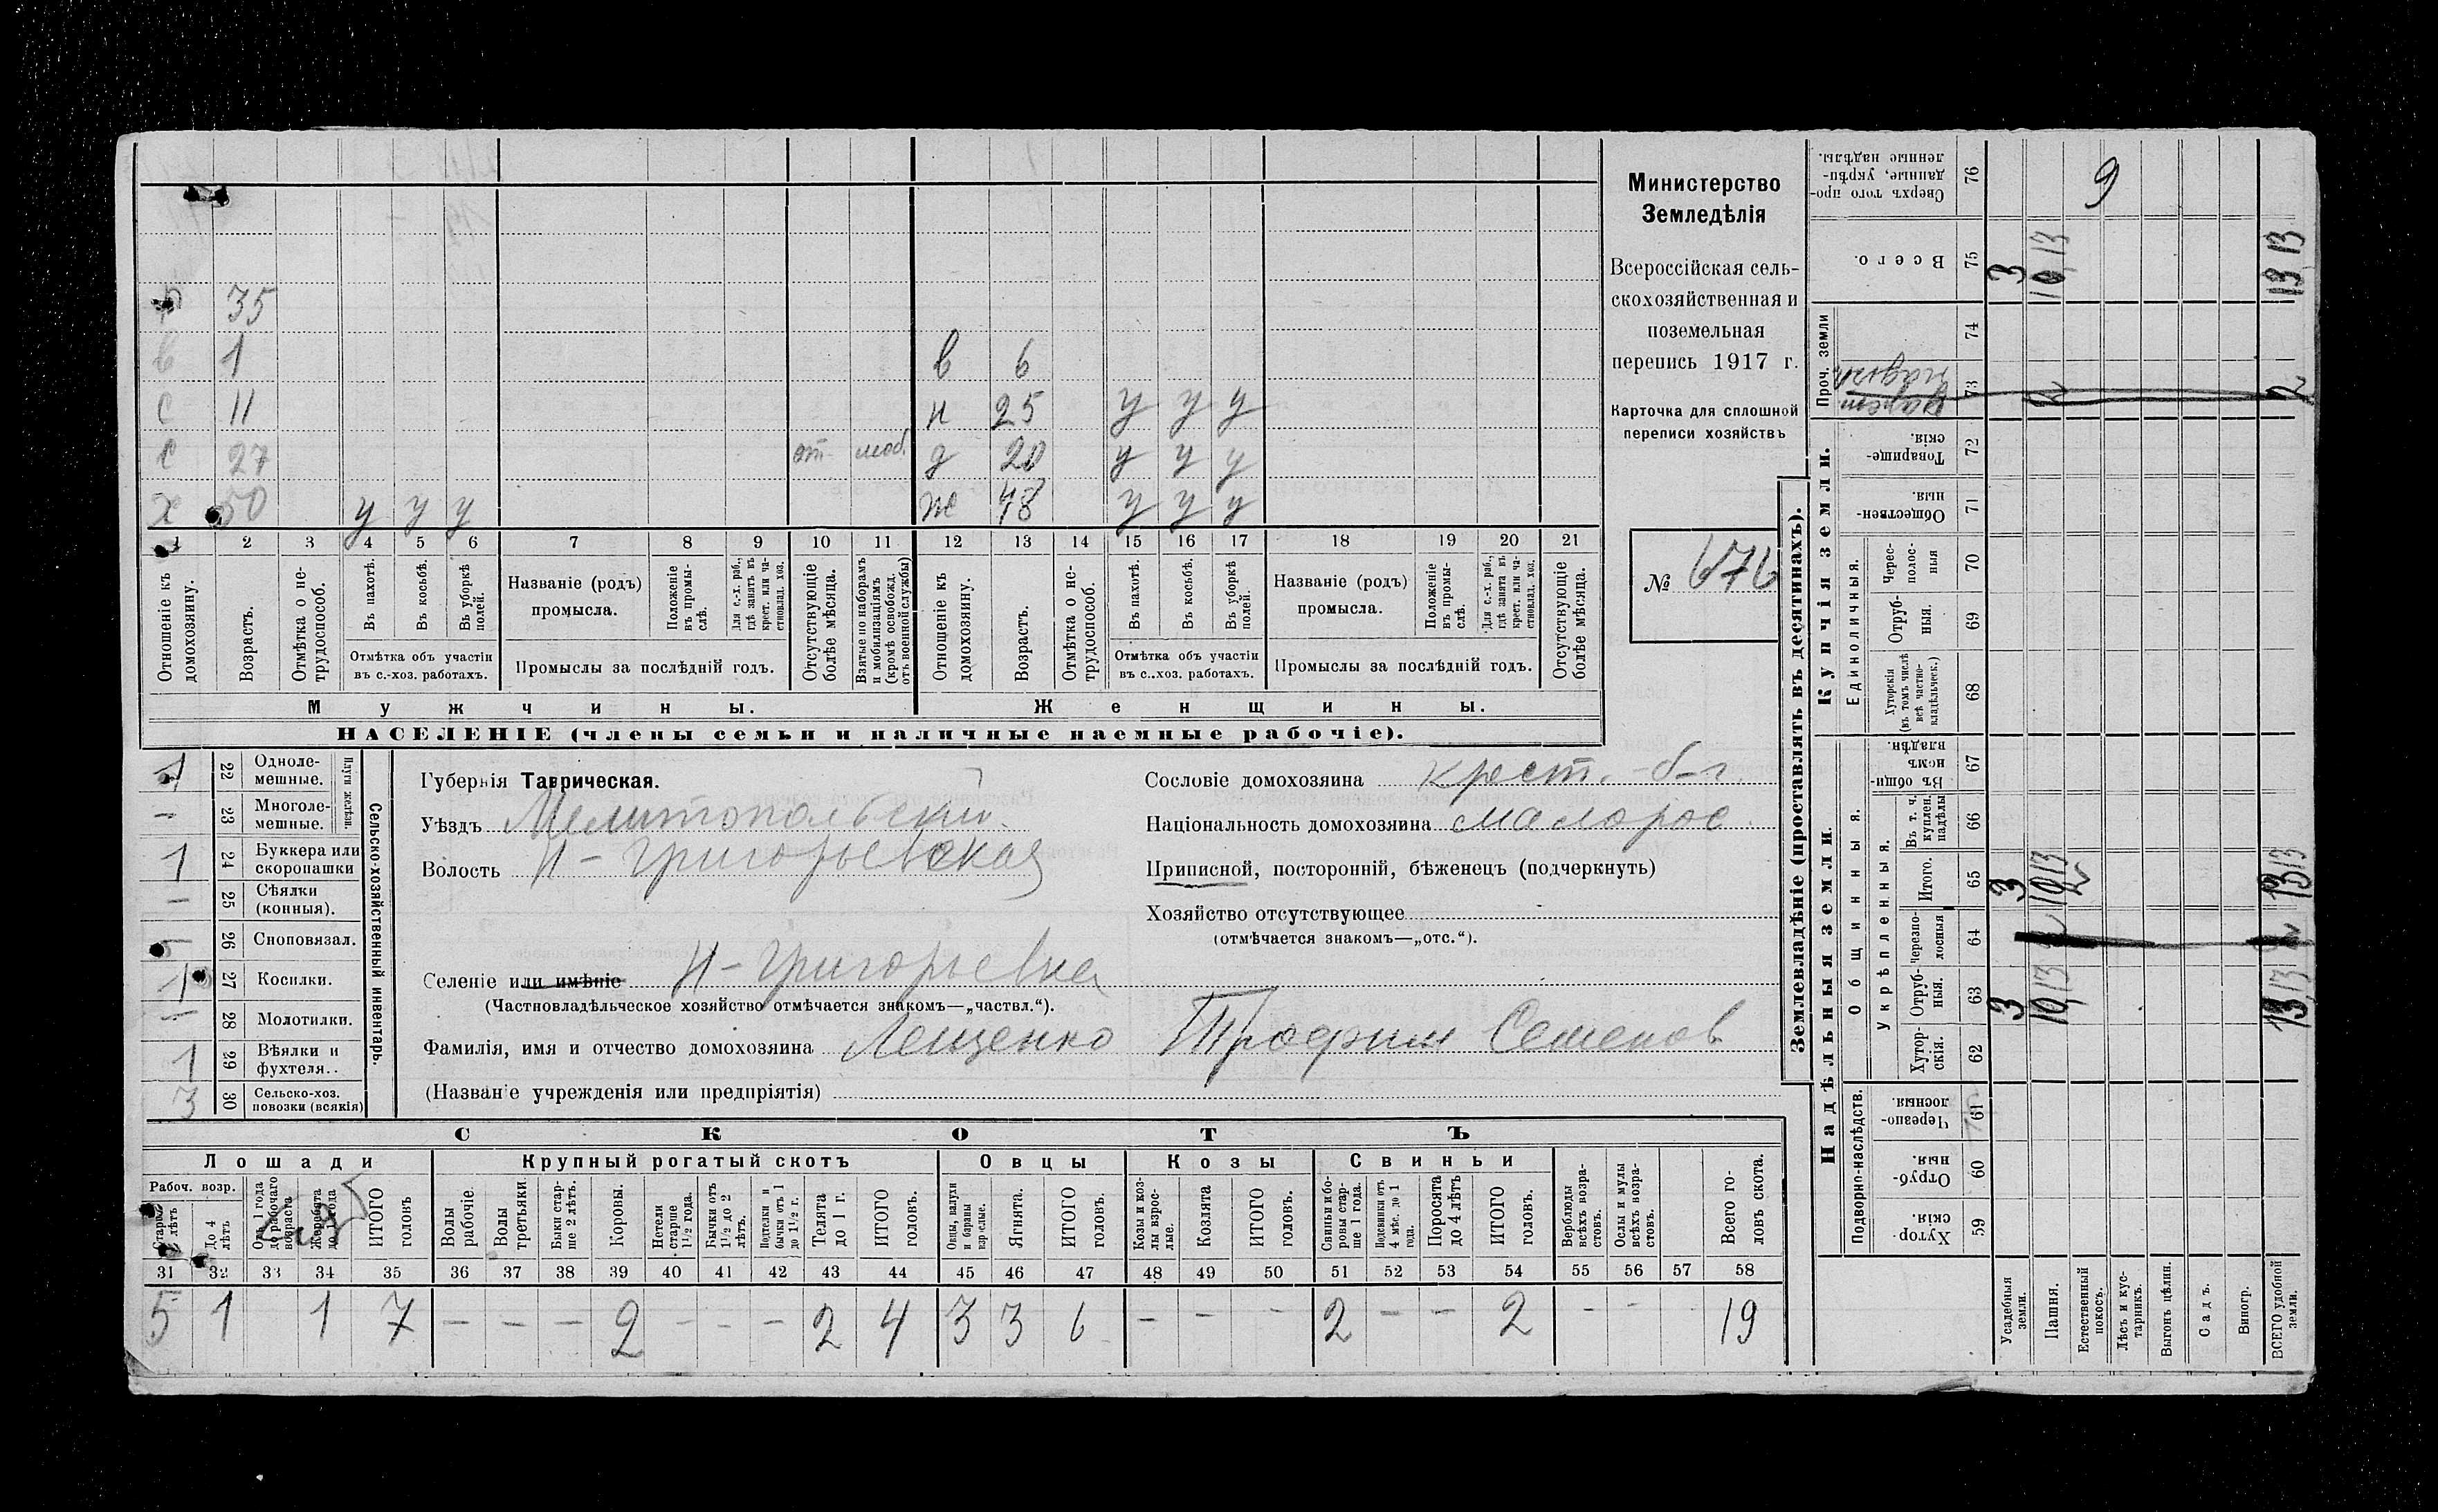 35
в 1 в 6
с 11 н 25 у у у
с 27 от моб. д 20 у у у
х 50 у у у ж 48 у у у
1 2 3 4 5 6 7 8 9 10 11 12 13 14 15 16 17 18 19 20 21
Отношеніе къ домохозяину.
Возрастъ.
Отмѣтка о не-
трудоспособ.
Въ пахотѣ.
Въ косьбѣ.
Въ уборкѣ
полей.
Отмѣтка объ участіи
въ с.-хоз. работахъ.
Названіе (родъ)
промысла.
Положеніе
въ промы-
слѣ.
Для с.-х. раб.,
гдѣ занятъ въ
крест. или ча-
стновлад. хоз.
Промыслы за послѣдній годъ.
Отсутствующіе
болѣе мѣсяца.
Взятые по наборамъ
и мобилизаціямъ
(кромѣ освобожд.
отъ военной службы)
Отношеніе къ
домохозяину.
Возрастъ.
Отмѣтка о не-
трудоспособ.
Въ пахотѣ.
Въ косьбѣ.
Въ уборкѣ
полей.
Отмѣтка объ участіи
въ с..хоз. работахъ.
Названіе (родъ)
промысла.
Положеніе
въ промы-
слѣ.
Для с.-х. раб.,
гдѣ занята въ
крест. или ча-
стновлад. хоз.
Промыслы за послѣдній годъ.
Отсутствующіе
болѣе мѣсяца.
Мужчины. Женщины.
НАСЕЛЕНІЕ (члены семьи и наличные наемные рабочіе).
Министерство
Земледѣлія
Всероссійская сель-
скохозяйственная и
поземельная
перепись 1917 г.
Карточка для сплошной
переписи хозяйствъ
№ 676
1 22 Одноле-
мешные.
– 23 Многоле-
мешные.
Плуги желѣзн.
1 24 Буккера или
скоропашки
– 25 Сѣялки
(конныя).
26 Сноповязал.
1 27 Косилки.
– 28 Молотилки.
1 29 Вѣялки и
фухтеля..
3 30 Сельско-хоз.
повозки (всякія)
Сельско-хозяйственный инвентарь.
Губернія Таврическая.
Уѣздъ Мелитопольскій
Волость Н-Григорьевская
Селеніе или имѣніе Н-Григорьевка
(Частновладѣльческое хозяйство отмѣчается знакомъ—„частвл.“).
Фамилія, имя и отчество домохозяина Лещенко Трофим Семенов
(Названіе учрежденія или предпріятія)
Сословіе домохозяина крест.
Національность домохозяина малорос
Приписной, посторонній, бѣженецъ (подчеркнуть)
Хозяйство отсутствующее
(отмѣчается знакомъ—„отс.“).
СКОТЪ
Лошади Крупный рогатый скотъ Овцы Козы Свиньи
Рабоч. возр.
До 4
лѣтъ
Отъ 1 года
до рабочаго
возраста
Жеребята
до 1 года
ИТОГО
головъ
Волы
рабочіе.
Волы
третьяки.
Быки стар-
ше 2 лѣтъ.
Коровы.
Нетели
старше
1½ года.
Бычки отъ
1½ до 2
лѣтъ.
Подтелки и
бычки отъ 1
до 1½ г.
Телята
до 1 г.
ИТОГО
головъ.
Овцы, валухи
и бараны
взрослые.
Ягнята.
ИТОГО
головъ.
Козы и коз-
лы взрос-
лые.
Козлята
ИТОГО
головъ.
Свиньи и бо-
ровы стар-
ше 1 года.
Подсвинки отъ
4 мѣс. до 1
года.
Поросята
до 4 лѣтъ
ИТОГО
головъ.
Верблюды
всѣхъ возра-
стовъ.
Ослы и мулы
всѣхъ возра-
стовъ.
Всего го-
ловъ скота.
31 32 33 34 35 36 37 38 39 40 41 42 43 44 45 46 47 48 49 50 51 52 53 54 55 56 57 58
5 1 1 7 – – – 2 – – – 2 4 3 3 6 – – – 2 – – 2 – – – 19
Землевладѣніе (проставлять въ десятинахъ).
Сверхъ того про-
данные, укрѣп-
ленные надѣлы.
76 9
Всего. 75 3 10,13 13,13
Проч. земли
74
73 2 2
Купчія земли.
Товарище-
скія.
72
Обществен-
ныя.
71
Единоличныя.
Черес-
полос-
ныя
70
Отруб-
ныя.
69
Хуторскія
(въ томъ числѣ
всѣ частно-
владѣльческ.)
68
Надѣльныя земли.
Общинныя.
Въ общи-
номъ
владѣн.
67
Укрѣпленныя.
Въ т. ч.
куплен.
надѣлы
66
Итого. 65 3 10,13 2 13,13
Черезпо-
лосныя
64 2 2
Отруб-
ныя.
63 3 10,13 13,13
Хутор-
скія.
62
Подворно-наслѣдств.
Черезпо-
лосныя.
61
Отруб-
ныя.
60
Хутор-
скія.
59
Усадебныя
земли.
Пашня.
Естественный
покосъ.
Лѣсъ и кус-
тарникъ.
Выгонъ цѣлин.
Садъ.
Виногр.
ВСЕГО удобной
земли.